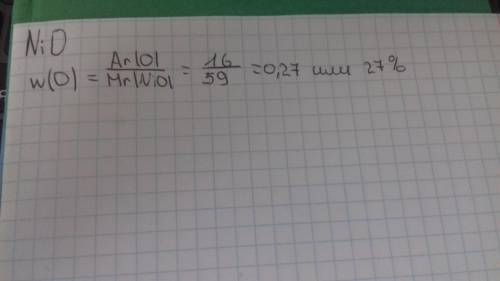 NiO
w(O) = Ar(O) / Mr(NiO) = 16 / 59 = 0,27 или 27%